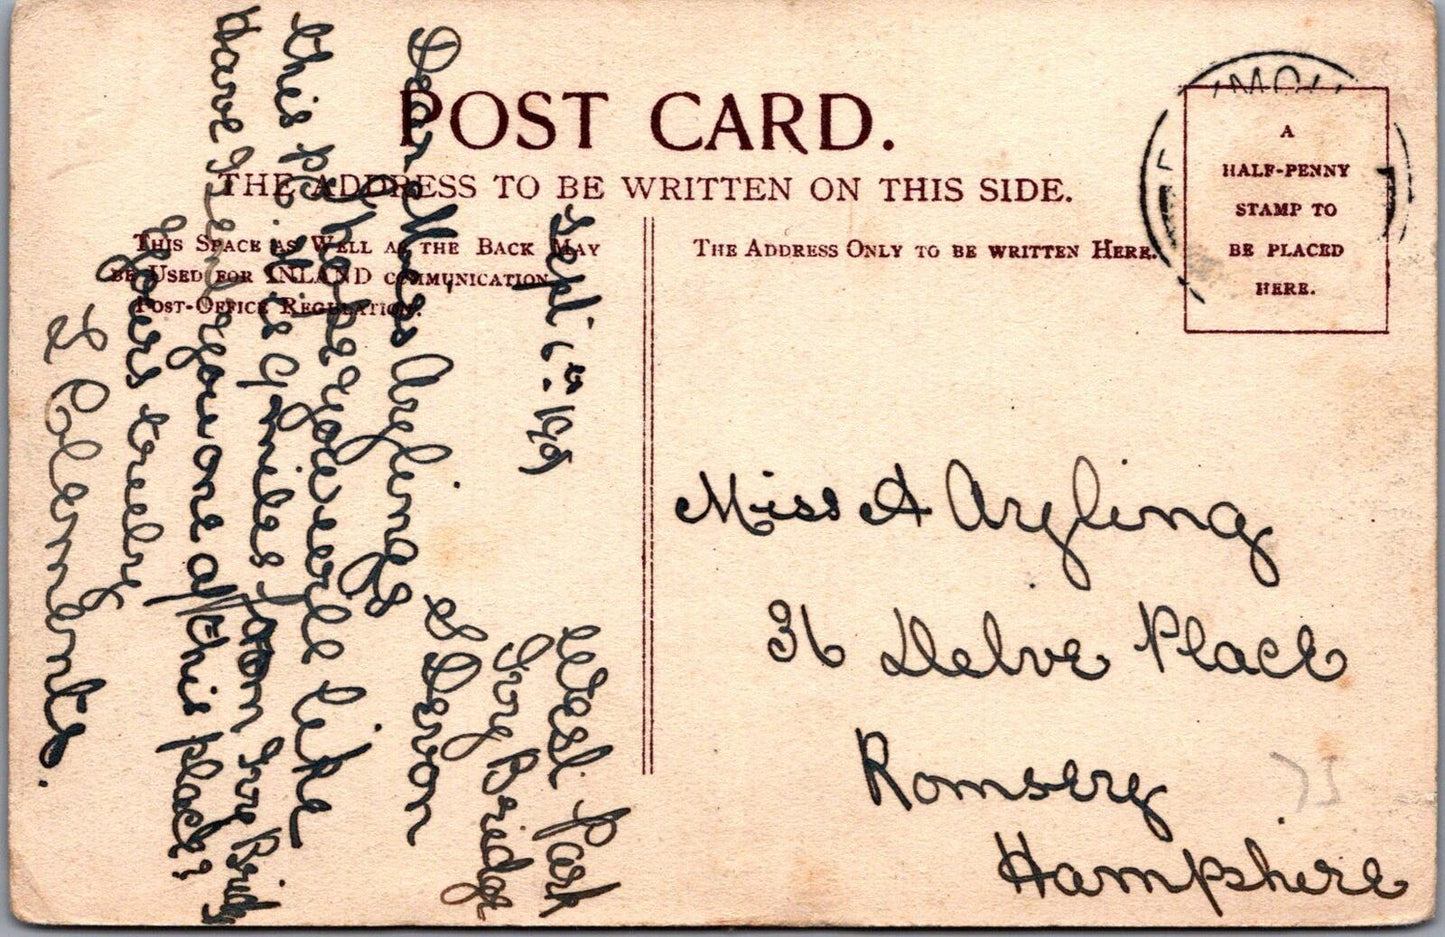 POST CARD.
THE ADDRESS TO BE WRITTEN ON THIS SIDE.
THIS SPACE AS WELL AS THE BACK MAY
BE USED FOR INLAND COMMUNICATION
POST-OFFICE REGULATION.
THE ADDRESS ONLY TO BE WRITTEN HERE.
A
HALF-PENNY
STAMP TO
BE PLACED
HERE.
Miss A Aryling
36 Delve Place
Romsery
Hampshire
West Park
Ivy Bridge
S Devon
Sept.
Dear Miss Arylings
I hope you will like
this pc. it is 9 miles from Ivre Bridg
Have I send you one off this place?
Yours truely
L Clements.